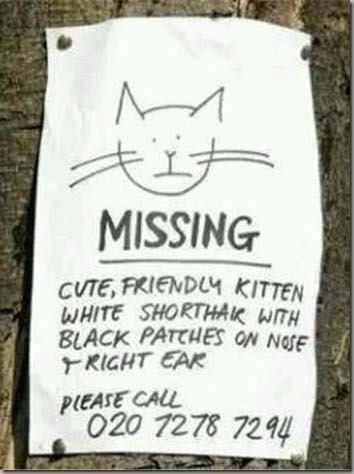 MISSING
CUTE, FRIENDLY KITTEN
WHITE SHORTHAIR WITH
BLACK PATCHES ON NOSE
+ RIGHT EAR
PLEASE CALL
020 7278 7294